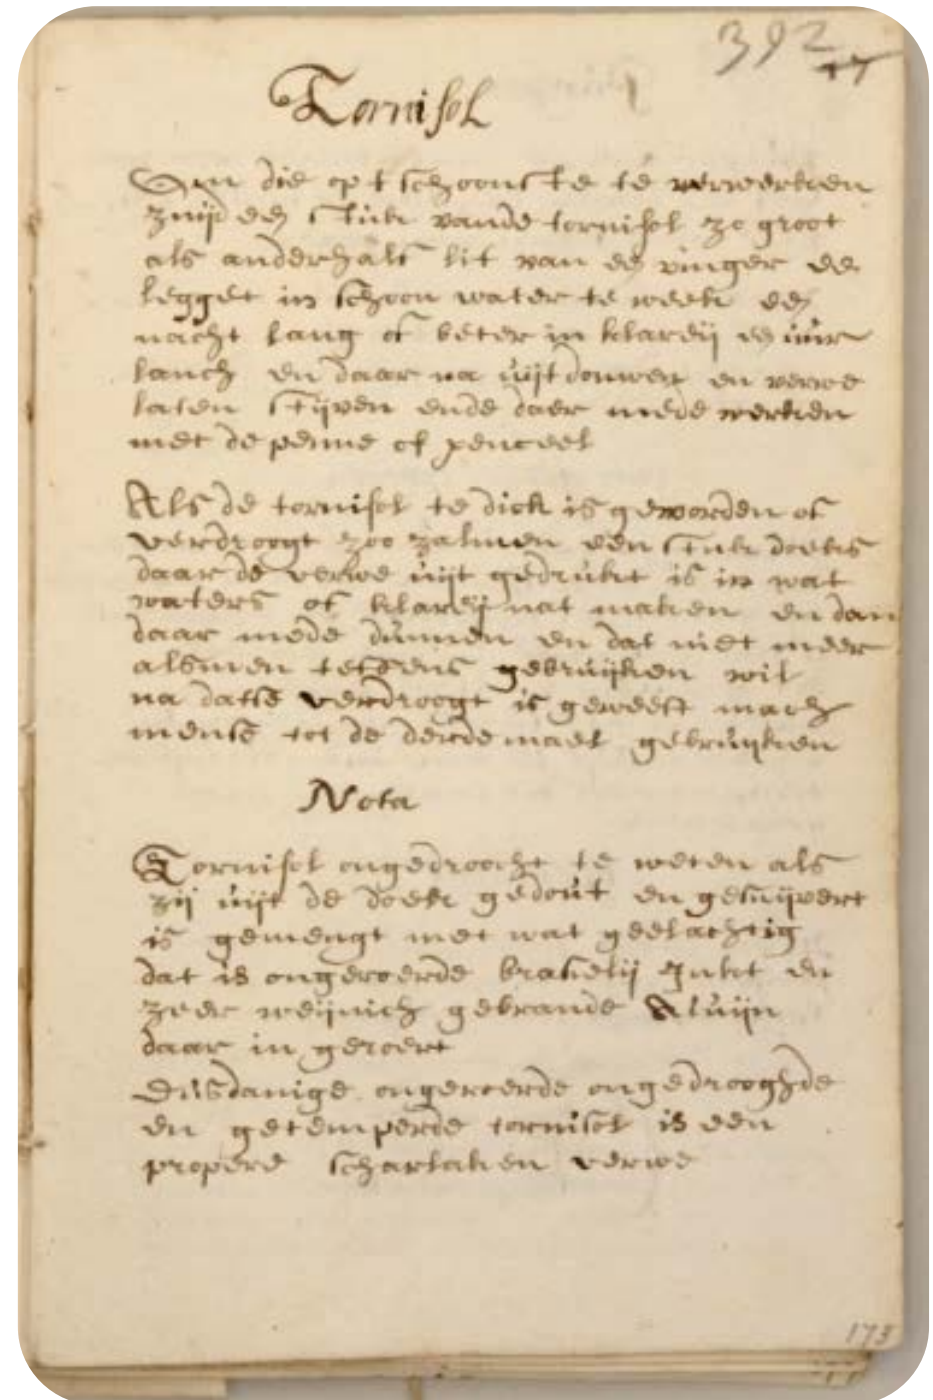 392
17
Tornisol
Om die opt schoonste te verwerken
znijd een stuk vande tornisol zo groot
als anderhalf lit van een vinger en
legget in schoon water te week een
nacht lang of beter in klareij een uur
lanch en daar na uijt douwen en verwe
laten stijven ende daer mede werken
met de penne of penceel
Als de tornisol te dick is geworden of
verdroogt zoo zalmen een stuk doeks
daar de verwe uijt gedrukt is in wat
waters of klareij nat maken en dan
daar mede dunnen en dat niet meer
alsmen teffens gebruijken wil
na datse verdroogt is geweest mach
mense tot de derde mael gebruijken
Nota
Tornisol ongedroocht te weten als
zij uijt de doek gedout en gesuijvert
is gemengt met wat geelachtig
dat is ongeroerde braselij Inkt en
zeer weijnich gebrande Aluijn
daar in geroert
dusdanige ongeroerde ongedrooghde
en getemperde tornisol is een
propere scharlaken verwe
173